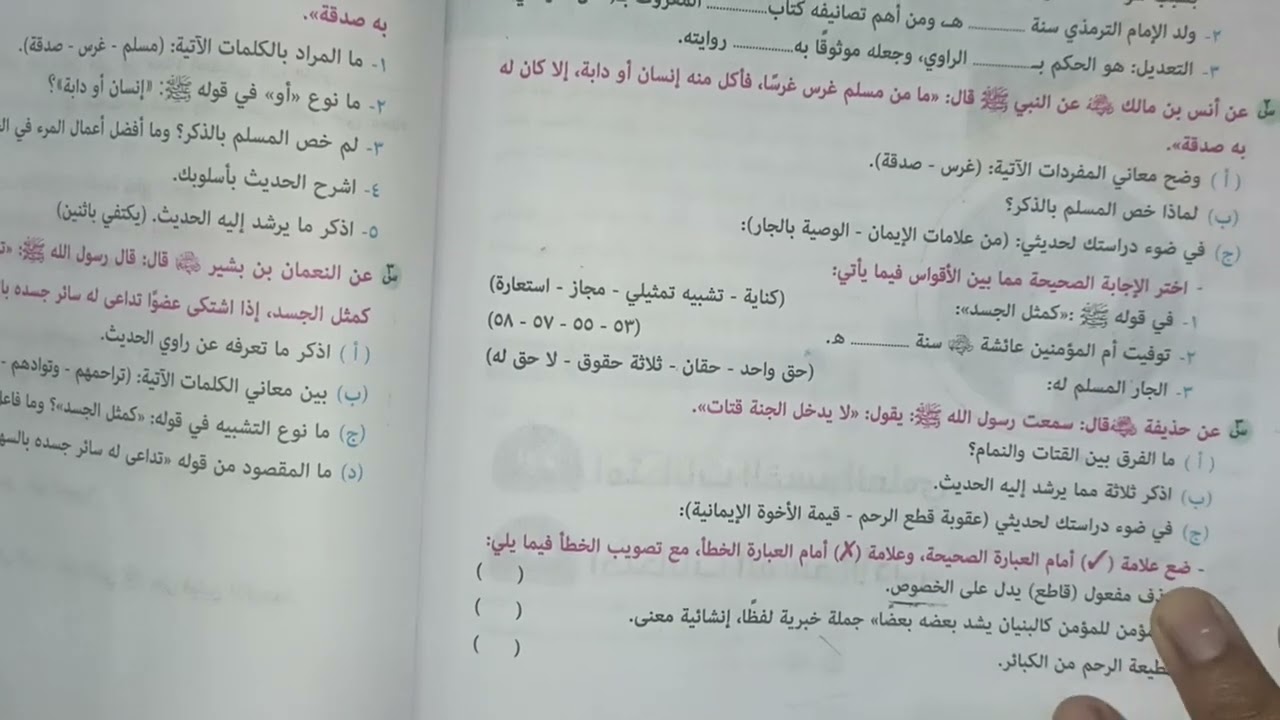 ٢- ولد الإمام الترمذي سنة ............ هـ، ومن أهم تصانيفه كتاب............
٣- التعديل: هو الحكم بـ............ الراوي، وجعله موثوقًا به............ روايته.
عن أنس بن مالك ﷺ عن النبي ﷺ قال: «ما من مسلم غرس غرسًا، فأكل منه إنسان أو دابة، إلا كان له
به صدقة».
(أ) وضح معاني المفردات الآتية: (غرس - صدقة).
(ب) لماذا خص المسلم بالذكر؟
(ج) في ضوء دراستك لحديثي: (من علامات الإيمان - الوصية بالجار):
- اختر الإجابة الصحيحة مما بين الأقواس فيما يأتي:
١- في قوله ﷺ :«كمثل الجسد»: (كناية - تشبيه تمثيلي - مجاز - استعارة)
٢- توفيت أم المؤمنين عائشة سنة ............ هـ. (٥٣ - ٥٥ - ٥٧ - ٥٨)
٣- الجار المسلم له: (حق واحد - حقان - ثلاثة حقوق - لا حق له)
عن حذيفة قال: سمعت رسول الله ﷺ: يقول: «لا يدخل الجنة قتات».
(أ) ما الفرق بين القتات والنمام؟
(ب) اذكر ثلاثة مما يرشد إليه الحديث.
(ج) في ضوء دراستك لحديثي (عقوبة قطع الرحم - قيمة الأخوة الإيمانية):
- ضع علامة (✓) أمام العبارة الصحيحة، وعلامة (✗) أمام العبارة الخطأ، مع تصويب الخطأ فيما يلي:
مفعول (قاطع) يدل على الخصوص. ( )
للمؤمن كالبنيان يشد بعضه بعضًا» جملة خبرية لفظًا، إنشائية معنى. ( )
الرحم من الكبائر. ( )
به صدقة».
١- ما المراد بالكلمات الآتية: (مسلم - غرس - صدقة).
٢- ما نوع «أو» في قوله ﷺ: «إنسان أو دابة»؟
٣- لم خص المسلم بالذكر؟ وما أفضل أعمال المرء في
٤- اشرح الحديث بأسلوبك.
٥- اذكر ما يرشد إليه الحديث. (يكتفي باثنين)
عن النعمان بن بشير قال: قال رسول الله ﷺ:
كمثل الجسد، إذا اشتكى عضوًا تداعى له سائر جسده
(أ) اذكر ما تعرفه عن راوي الحديث.
(ب) بين معاني الكلمات الآتية: (تراحمهم - وتوادهم -
(ج) ما نوع التشبيه في قوله: «كمثل الجسد»؟ وما
(د) ما المقصود من قوله «تداعى له سائر جسده